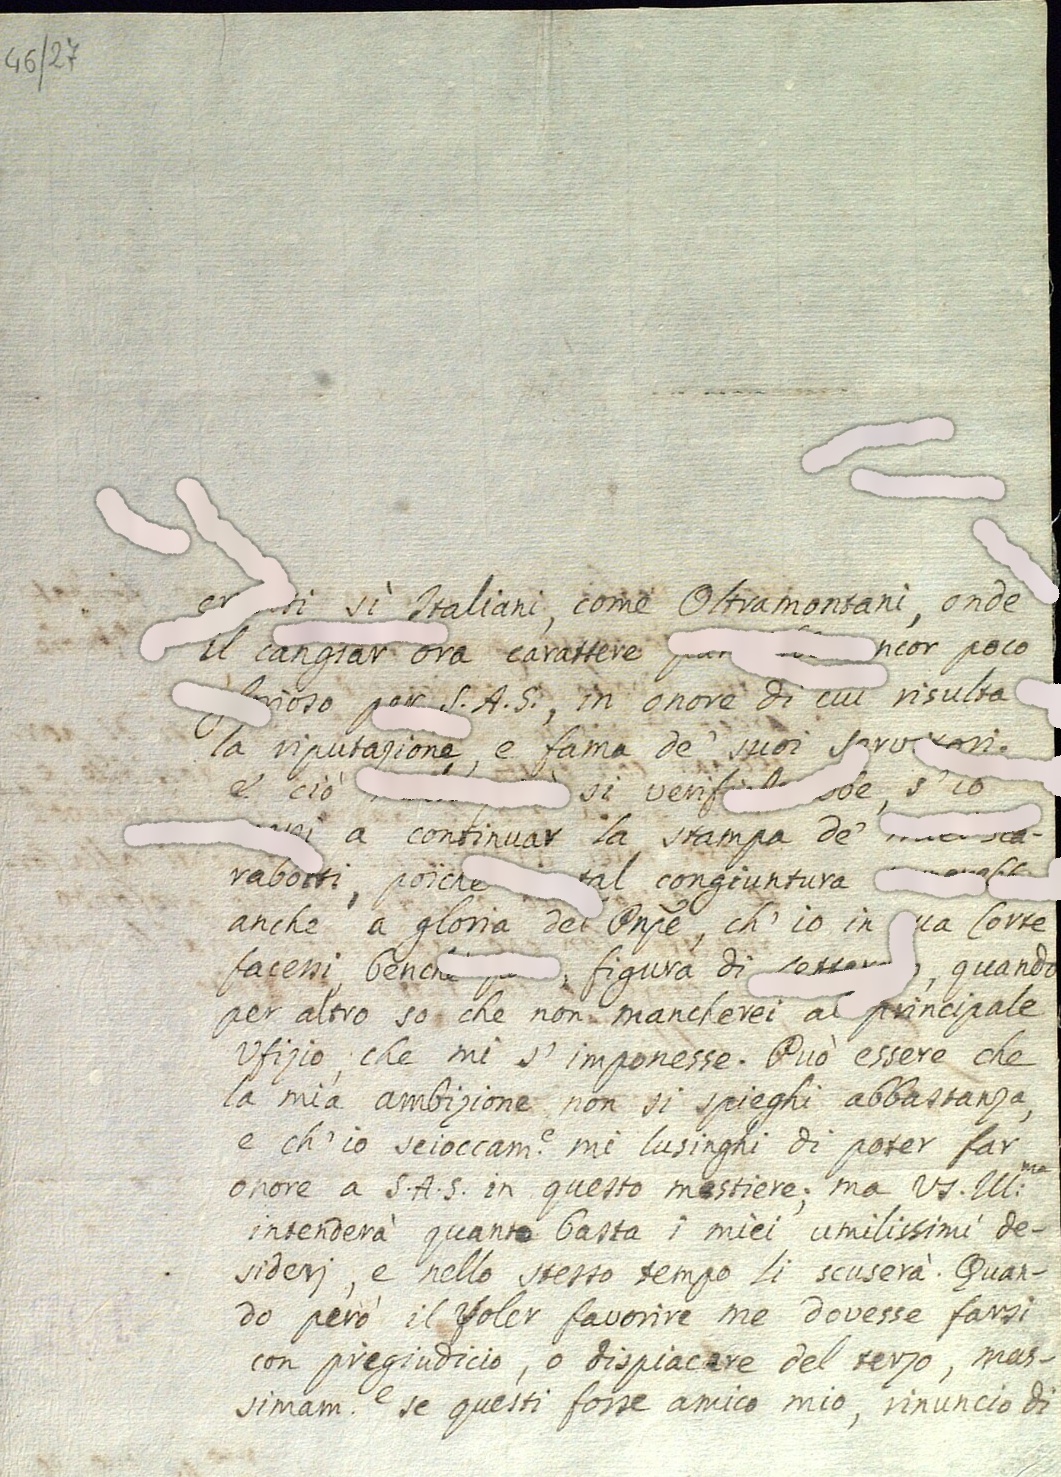 46/27
sì Italiani, come Oltramontani, onde
il cangiar ora carattere ncor poco
per S.A.S., in onore di cui risulta
la riputazione, e fama de' suoi servitori.
e ciò si s' io
a continuar la stampa de' miei sca-
rabotti, poichè tal congiuntura
anche a gloria del Pnpe, ch' io in sua Corte
facessi, benchè figura di quando
per altro so che non mancherei al principale
Ufizio, che mi s' imponesse. Può essere che
la mia ambizione non si spieghi abbastanza,
e ch' io scioccam.e mi lusinghi di poter far
onore a S.A.S. in questo mestiere; ma VS. Ill:ma
intenderà quanto basta i miei umilissimi de-
siderj, e nello stesso tempo li scuserà. Quan-
do però il voler favorire me dovesse farsi
con pregiudicio, o dispiacere del terzo, mas-
simam.e se questi fosse amico mio, rinuncio di